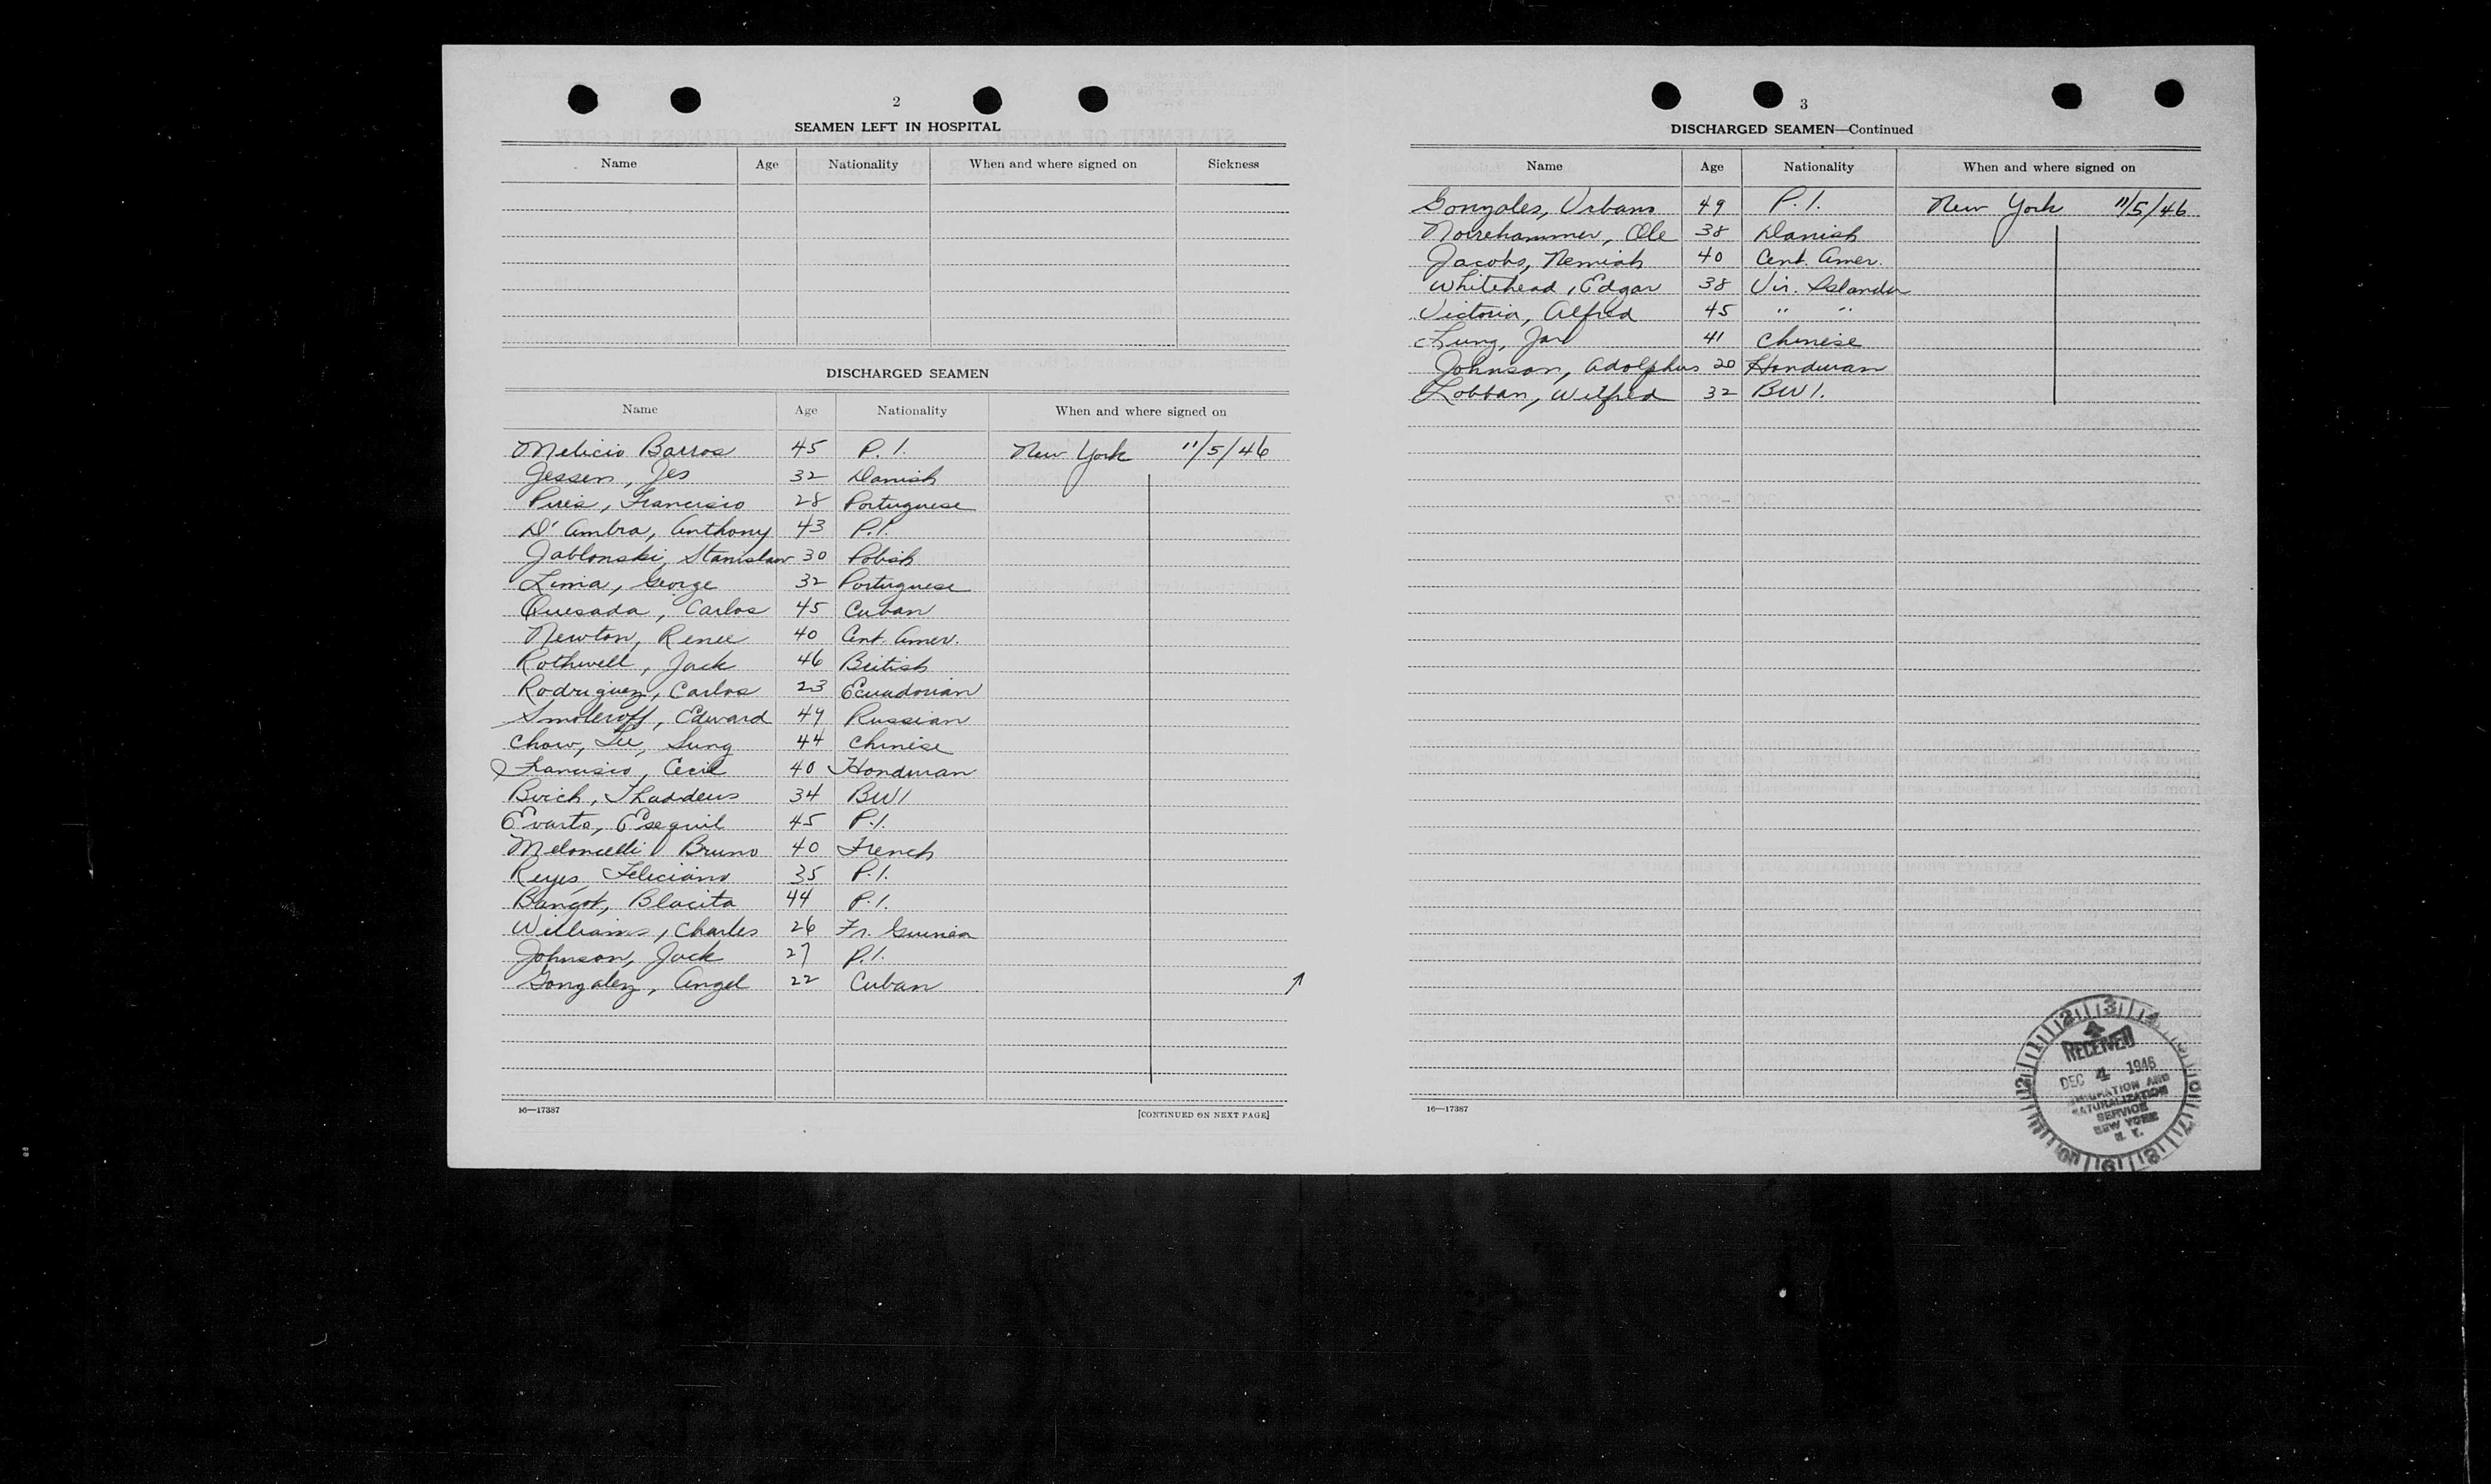 2
SEAMEN LEFT IN HOSPITAL
Name Age Nationality When and where signed on Sickness
DISCHARGED SEAMEN
Name Age Nationality When and where signed on
Melicio Barros 45 P.I. New York 11/5/46
Jessen, Jes 32 Danish
Pires, Francisco 28 Portuguese
D'Ambra, Anthony 43 P.I.
Jablonski, Stanislaw 30 Polish
Lima, George 32 Portuguese
Quesada, Carlos 45 Cuban
Newton, Renee 40 Cent. Amer.
Rothwell, Jack 46 British
Rodriguez, Carlos 23 Ecuadorian
Smoleroff, Edward 49 Russian
Chow, Lee, Sung 44 Chinese
Francisco, Cecil 40 Honduran
Birch, Thaddeus 34 BWI
Evarts, Esequil 45 P.I.
Meloncelli Bruno 40 French
Reyes, Feliciano 35 P.I.
Bangot, Blacita 44 P.I.
Williams, Charles 26 Fr. Guinea
Johnson, Jack 27 P.I.
Gonzalez, Angel 22 Cuban
16—17387 [CONTINUED ON NEXT PAGE]
3
DISCHARGED SEAMEN—Continued
Name Age Nationality When and where signed on
Gonzales, Urbano 49 P.I. New York 11/5/46
Noirrehammer, Ole 38 Danish
Jacobs, Nemiah 40 Cent. Amer.
Whitehead, Edgar 38 Vir. Islander
Victoria, Alfred 45 " "
Lung, 41 Chinese
Johnson, Adolphus 20 Honduran
Lobban, Wilfred 32 BWI.
16—17387
RECEIVED
DEC 4 1946
IMMIGRATION AND
NATURALIZATION
SERVICE
NEW YORK
N. Y.